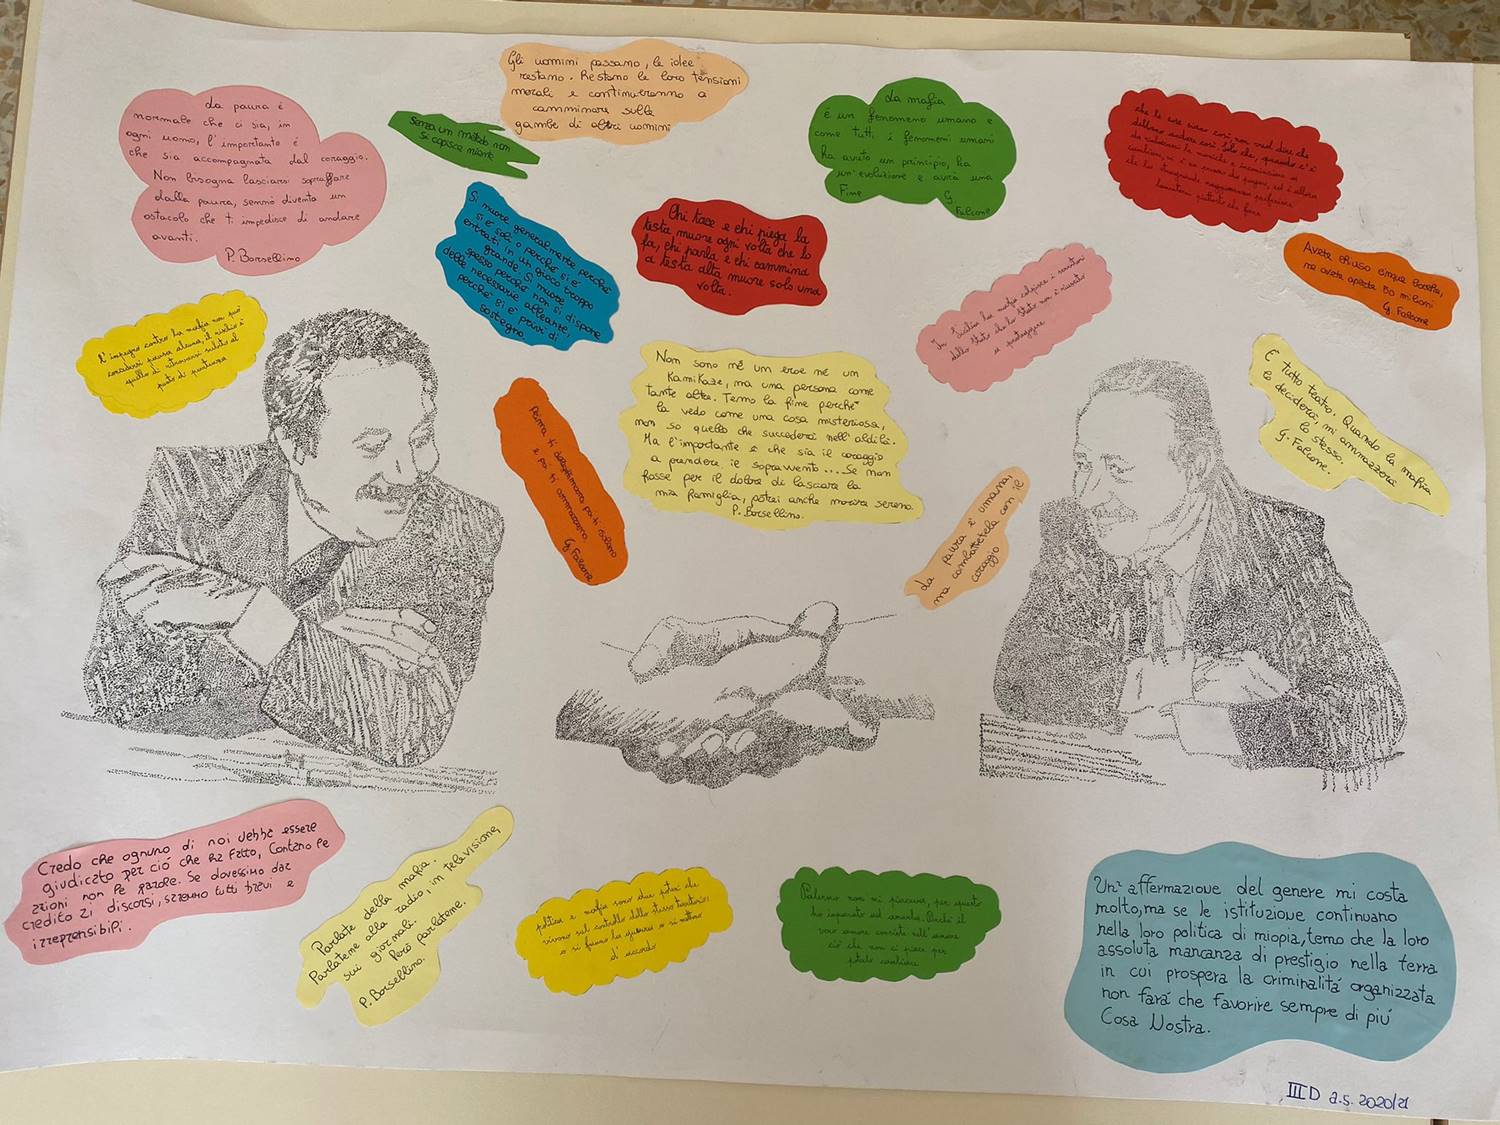 La paura è
normale che ci sia, in
ogni uomo, l'importante è
che sia accompagnata dal coraggio.
Non bisogna lasciarsi sopraffare
dalla paura, sennò diventa un
ostacolo che ti impedisce di andare
avanti.
P. Borsellino
Senza un metodo non
si capisce niente
Gli uomini passano, le idee
restano. Restano le loro tensioni
morali e continueranno a
camminare sulle
gambe di altri uomini
La mafia
è un fenomeno umano e
come tutti i fenomeni umani
ha avuto un principio, ha
un'evoluzione e avrà una
Fine G.
Falcone
che le cose siano così, non vuol dire che
debbano andare così. Solo che, quando c'è
da rimboccarsi le maniche e incominciare a
cambiare, vi è un prezzo da pagare, ed è allora
che la stragrande maggioranza preferisce
lamentarsi piuttosto che fare
Avete chiuso cinque bocche,
ne avete aperte 50 milioni
G. Falcone
Si muore generalmente perché
si è soli o perché si è
entrati in un gioco troppo
grande. Si muore
spesso perché non si dispone
delle necessarie alleanze,
perché si è privi di
sostegno.
Chi tace e chi piega la
testa muore ogni volta che lo
fa, chi parla e chi cammina
a testa alta muore solo una
volta.
In Sicilia la mafia colpisce i servitori
dello Stato che lo Stato non è riuscito
a proteggere
L'impegno contro la mafia non può
concedersi pausa alcuna, il rischio è
quello di ritrovarsi subito al
punto di partenza
Non sono né un eroe né un
Kamikaze, ma una persona come
tante altre. Temo la fine perché
la vedo come una cosa misteriosa,
non so quello che succederà nell'aldilà.
Ma l'importante è che sia il coraggio
a prendere il sopravvento....Se non
fosse per il dolore di lasciare la
mia famiglia, potrei anche morire sereno.
P. Borsellino.
È tutto teatro. Quando la mafia
lo deciderà, mi ammazzerà
lo stesso.
G. Falcone.
Prima ti delegittimano poi ti isolano
e poi ti ammazzano.
G. Falcone
La paura è umana
ma combattetela con il
coraggio
Credo che ognuno di noi debba essere
giudicato per ciò che ha fatto, Contano le
azioni non le parole. Se dovessimo dar
credito ai discorsi, saremmo tutti bravi e
irreprensibili.
Parlate della mafia.
Parlatene alla radio, in televisione,
sui giornali.
Però parlatene.
P. Borsellino.
politica e mafia sono due poteri che
vivono sul controllo dello stesso territorio:
o si fanno la guerra o si mettono
d'accordo
Palermo non mi piaceva, per questo
ho imparato ad amarla. Perché il
vero amore consiste nell'amare
ciò che non ci piace per
poterlo cambiare
Un'affermazione del genere mi costa
molto, ma se le istituzione continuano
nella loro politica di miopia, temo che la loro
assoluta mancanza di prestigio nella terra
in cui prospera la criminalitá organizzata
non fará che favorire sempre di piú
Cosa Nostra.
III D a.s. 2020/21